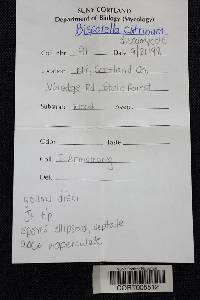 SUNY CORTLAND
Department of Biology (Mycology)
Bisporella citrina
discomycete
Coll. Nbr. 91 Date 9/21/92
Location NY, Cortland Co,
Rd, State Forest
Substrat. wood Assoc.
Odor Taste
Coll. J. Armstrong
Det.
yellow disci
J- tip
spores ellipsoid, septate
asci inoperculate
CORT005512